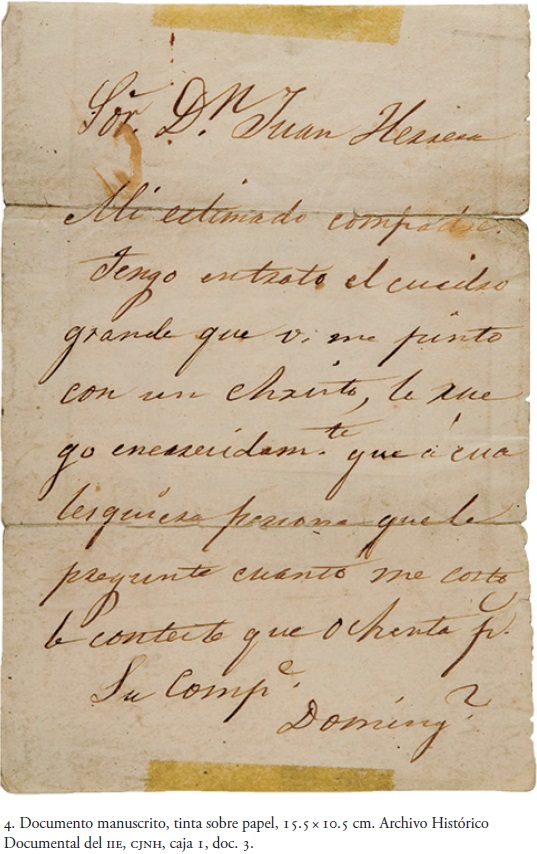 Sōr. D.ⁿ Juan Herrera
Mi estimado compadre.
Tengo entrato el cuadro
grande que v. me pinto
con un Christo, le rue
go encarecidam.te que á cua
lesquiera persona que le
pregunte cuanto me costo
le conteste que Ochenta p.
Su Comp.e
Doming.o
4. Documento manuscrito, tinta sobre papel, 15.5 × 10.5 cm. Archivo Histórico
Documental del IIE, CJNH, caja 1, doc. 3.